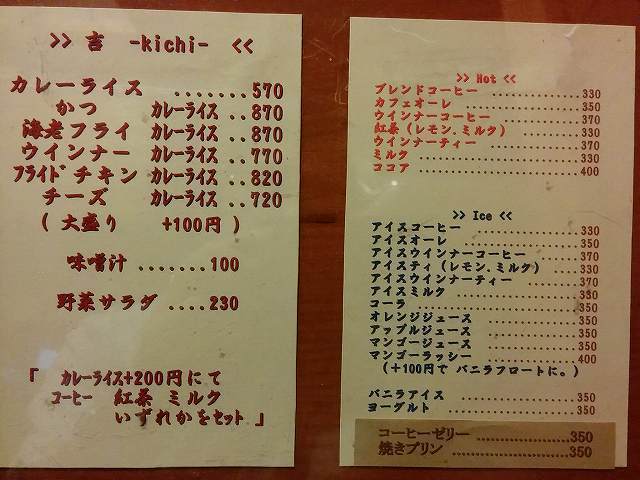 >> 吉 -kichi- <<
カレーライス .......570
かつ カレーライス ..870
海老フライ カレーライス ..870
ウインナー カレーライス ..770
フライドチキン カレーライス ..820
チーズ カレーライス ..720
( 大盛り +100円 )
味噌汁 .......100
野菜サラダ ....230
「 カレーライス+200円にて
コーヒー 紅茶 ミルク
いずれかをセット 」
>> Hot <<
ブレンドコーヒー ...............330
カフェオーレ ...................350
ウインナーコーヒー .............370
紅茶 (レモン.ミルク) ...........330
ウインナーティー ...............370
ミルク .........................330
ココア .........................400
>> Ice <<
アイスコーヒー .................330
アイスオーレ ...................350
アイスウインナーコーヒー .......370
アイスティ (レモン.ミルク) .....330
アイスウインナーティー .........370
アイスミルク ...................330
コーラ .........................350
オレンジジュース ...............350
アップルジュース ...............350
マンゴージュース ...............350
マンゴーラッシー ...............400
(+100円で バニラフロートに。)
バニラアイス ...................350
ヨーグルト .....................350
コーヒーゼリー .................350
焼きプリン .....................350